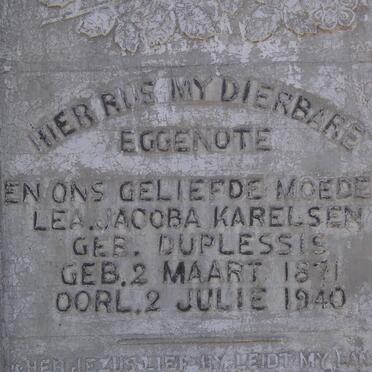 HIER RUS MY DIERBARE
EGGENOTE
EN ONS GELIEFDE MOEDE
LEA. JACOBA KARELSEN
GEB. DUPLESSIS
GEB. 2 MAART 1871
OORL. 2 JULIE 1940
JEZUS LIEF HY LEIDT MY